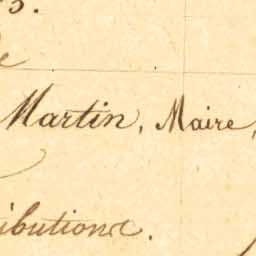 3.
Martin, Maire,
ibutions.